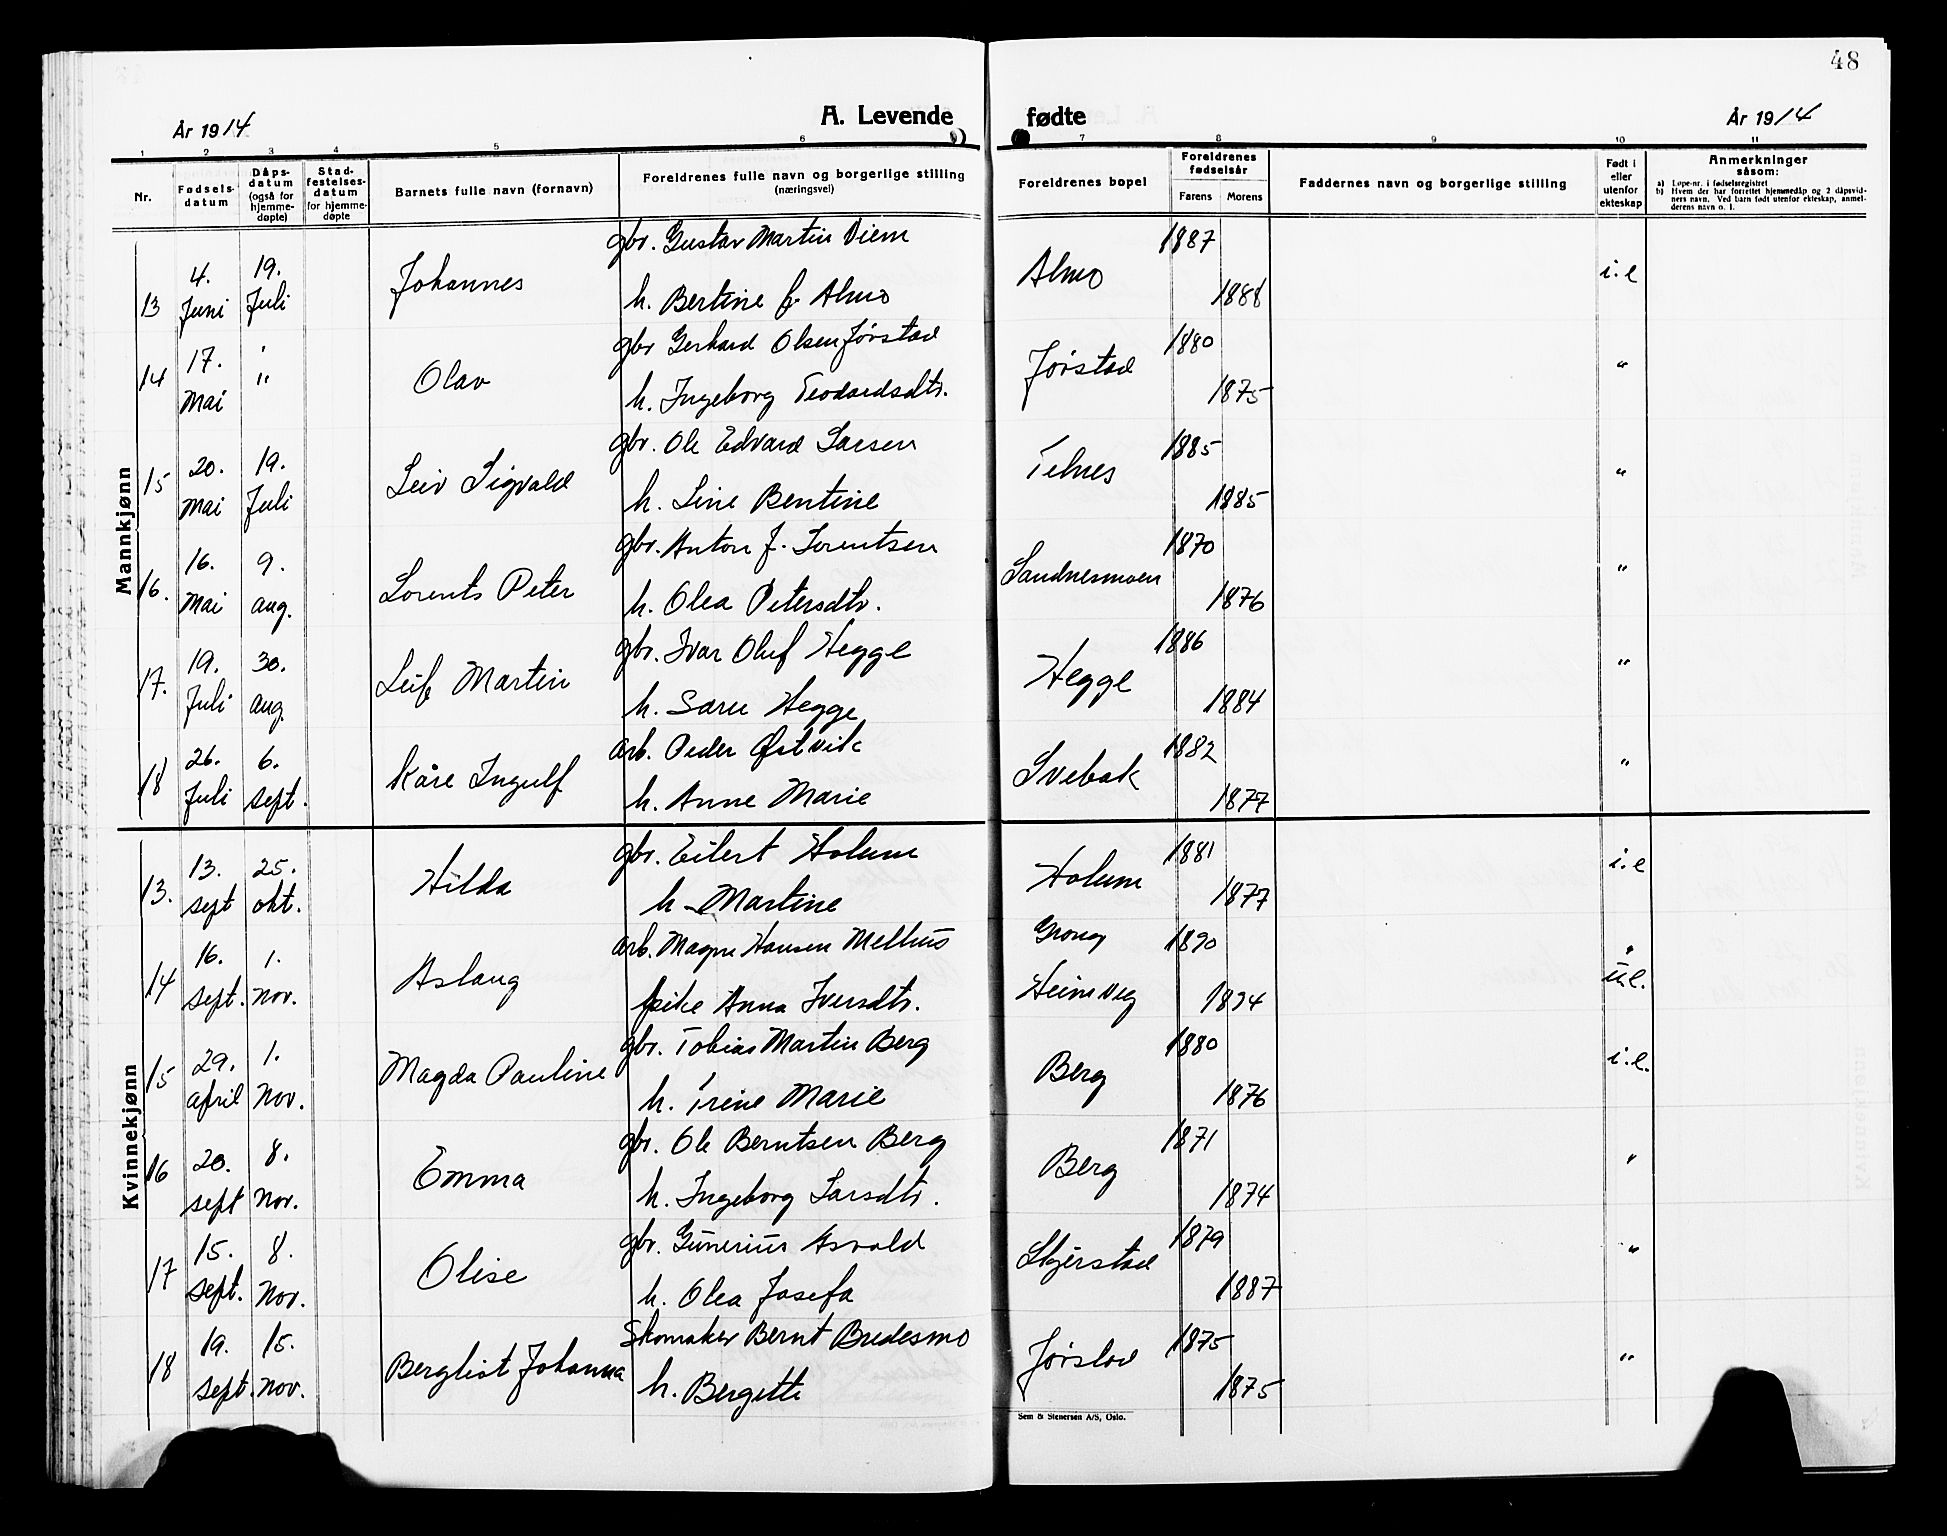 48
År 1914
A. Levende fødte
År 1914
1 2 3 4 5 6 7 8 9 10 11
Nr.
Fødsels-
datum
Dåps-
datum
(også for
hjemme-
døpte)
Stad-
festelses-
datum
for hjemme-
døpte
Barnets fulle navn (fornavn)
Foreldrenes fulle navn og borgerlige stilling
(næringsvei)
Foreldrenes bopel
Foreldrenes
fødselsår
Farens Morens
Faddernes navn og borgerlige stilling
Født i
eller
utenfor
ekteskap
Anmerkninger
såsom:
a) Løpe-nr. i fødselsregistret
b) Hvem der har forrettet hjemmedåp og 2 dåpsvid-
ners navn. Ved barn født utenfor ekteskap, anmel-
derens navn o. l.
Mannkjønn
13 4. Juni 19. Juli Johannes
gbr. Gustav Martin Viem
h. Bertine f. Almo
Almo 1887 1888 i.e
14 17. Mai " Olav
gbr Gerhard Olsen Jørstad
h. Ingeborg Teodardsdtr.
Jørstad 1880 1875 "
15 20. Mai 19. Juli Leiv Sigvald
gbr. Ole Edvard Larsen
h. Line Bentine
Telnes 1885 1885 "
16. 16. Mai 9. aug. Lorents Peter
gbr. Anton J. Lorentsen
h. Olea Petersdtr.
Sandnesmoen 1870 1876 "
17. 19. Juli 30. aug. Leif Martin
gbr. Ivar Oluf Hegge
h. Sara Hegge
Hegge 1886 1884 "
18 26. Juli 6. sept. Kåre Ingulf
arb. Peder Østvik
h. Anne Marie
Svebak 1882 1877 "
Kvinnekjønn
13. 13. sept 25. okt. Hilda
gbr. Eilert Holum
h. Martine
Holum 1881 1877 i.e
14 16. sept. 1. nov. Aslaug
arb. Magne Hansen Mellius
pike Anna Iversdtr.
Grong 1890
Heimveg 1894 u.e.
15 29. april 1. nov. Magda Pauline
gbr. Tobias Martin Berg
h. Irene Marie
Berg 1880 1876 i.e.
16 20. sept 8. nov. Emma
gbr. Ole Berntsen Berg
h. Ingeborg Larsdtr.
Berg 1871 1874 "
17 15. sept. 8. nov. Olise
gbr. Gunerius Asvold
h. Olea Josefa
Skjerstad 1879 1887 "
18 19. sept. 15. nov. Bergliot Johanna
Skomaker Bernt Bredesmo
h. Bergitte
Jørstad 1875 1875 "
Sem & Stenersen A/S, Oslo.